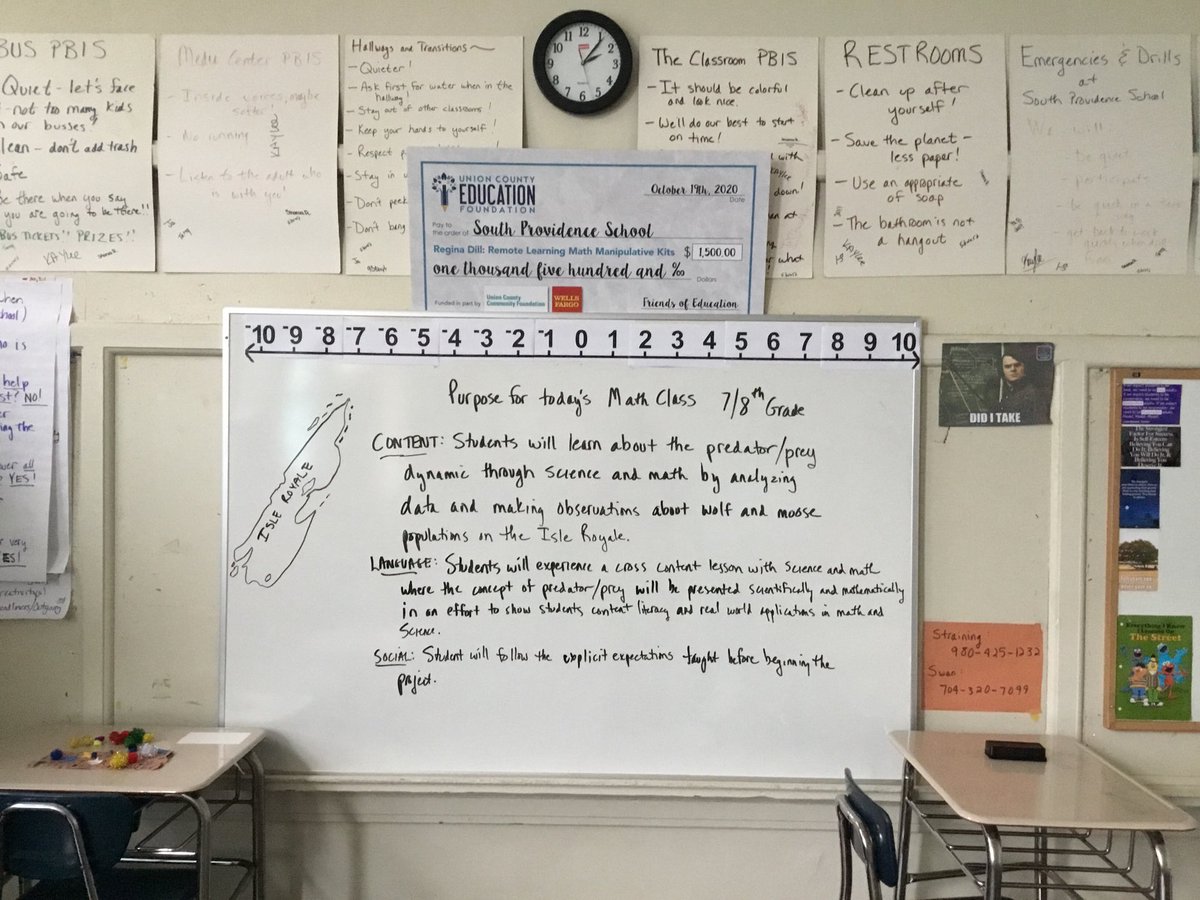 BUS PBIS
Quiet - let's face
not too many kids
on our busses
Clean - don't add trash
Safe
Be there when you say
you are going to be there!!
BUS TICKETS" PRIZES!'
KAYLEE
Media Center PBIS
- Inside voices, maybe
softer
- No running
KAYLEE
- Listen to the adult who
is with you!
Hallways and Transitions
- Quieter!
- Ask first for water when in the
hallway!
- Stay out of other classrooms!
- Keep your hands to yourself!
- Respect
- Stay in
- Don't peek
- Don't bang
12
1
2
3
4
5
6
7
8
9
10
11
The Classroom PBIS
- It should be colorful
and look nice.
- We'll do our best to start
on time!
with
down!
at
what
RESTROOMS
- Clean up after
yourself!
- Save the planet -
less paper!
- Use an appropriate
of soap
- The bathroom is not
a hangout
KAYLEE
Emergencies & Drills
at
South Providence School
We will
- be quiet
- participate
UNION COUNTY
EDUCATION
FOUNDATION
October 19th, 2020
Date
Pay to
the order of South Providence School
Regina Dill: Remote Learning Math Manipulative Kits $ 1,500.00
one thousand five hundred and ‰
Dollars
Funded in part by Union County
Community Foundation
WELLS
FARGO
Friends of Education
-10 -9 -8 -7 -6 -5 -4 -3 -2 -1 0 1 2 3 4 5 6 7 8 9 10
Purpose for today's Math Class 7/8th Grade
CONTENT: Students will learn about the predator/prey
dynamic through science and math by analyzing
data and making observations about wolf and moose
populations on the Isle Royale.
LANGUAGE: Students will experience a cross content lesson with science and math
where the concept of predator/prey will be presented scientifically and mathematically
in an effort to show students content literacy and real world applications in math and
Science.
SOCIAL: Student will follow the explicit expectations taught before beginning the
project.
ISLE ROYALE
help
NO!
YES!
DID I TAKE
Straining
980-425-1232
Swan:
704-320-7099
Everything I Know
I Learned On
The Street